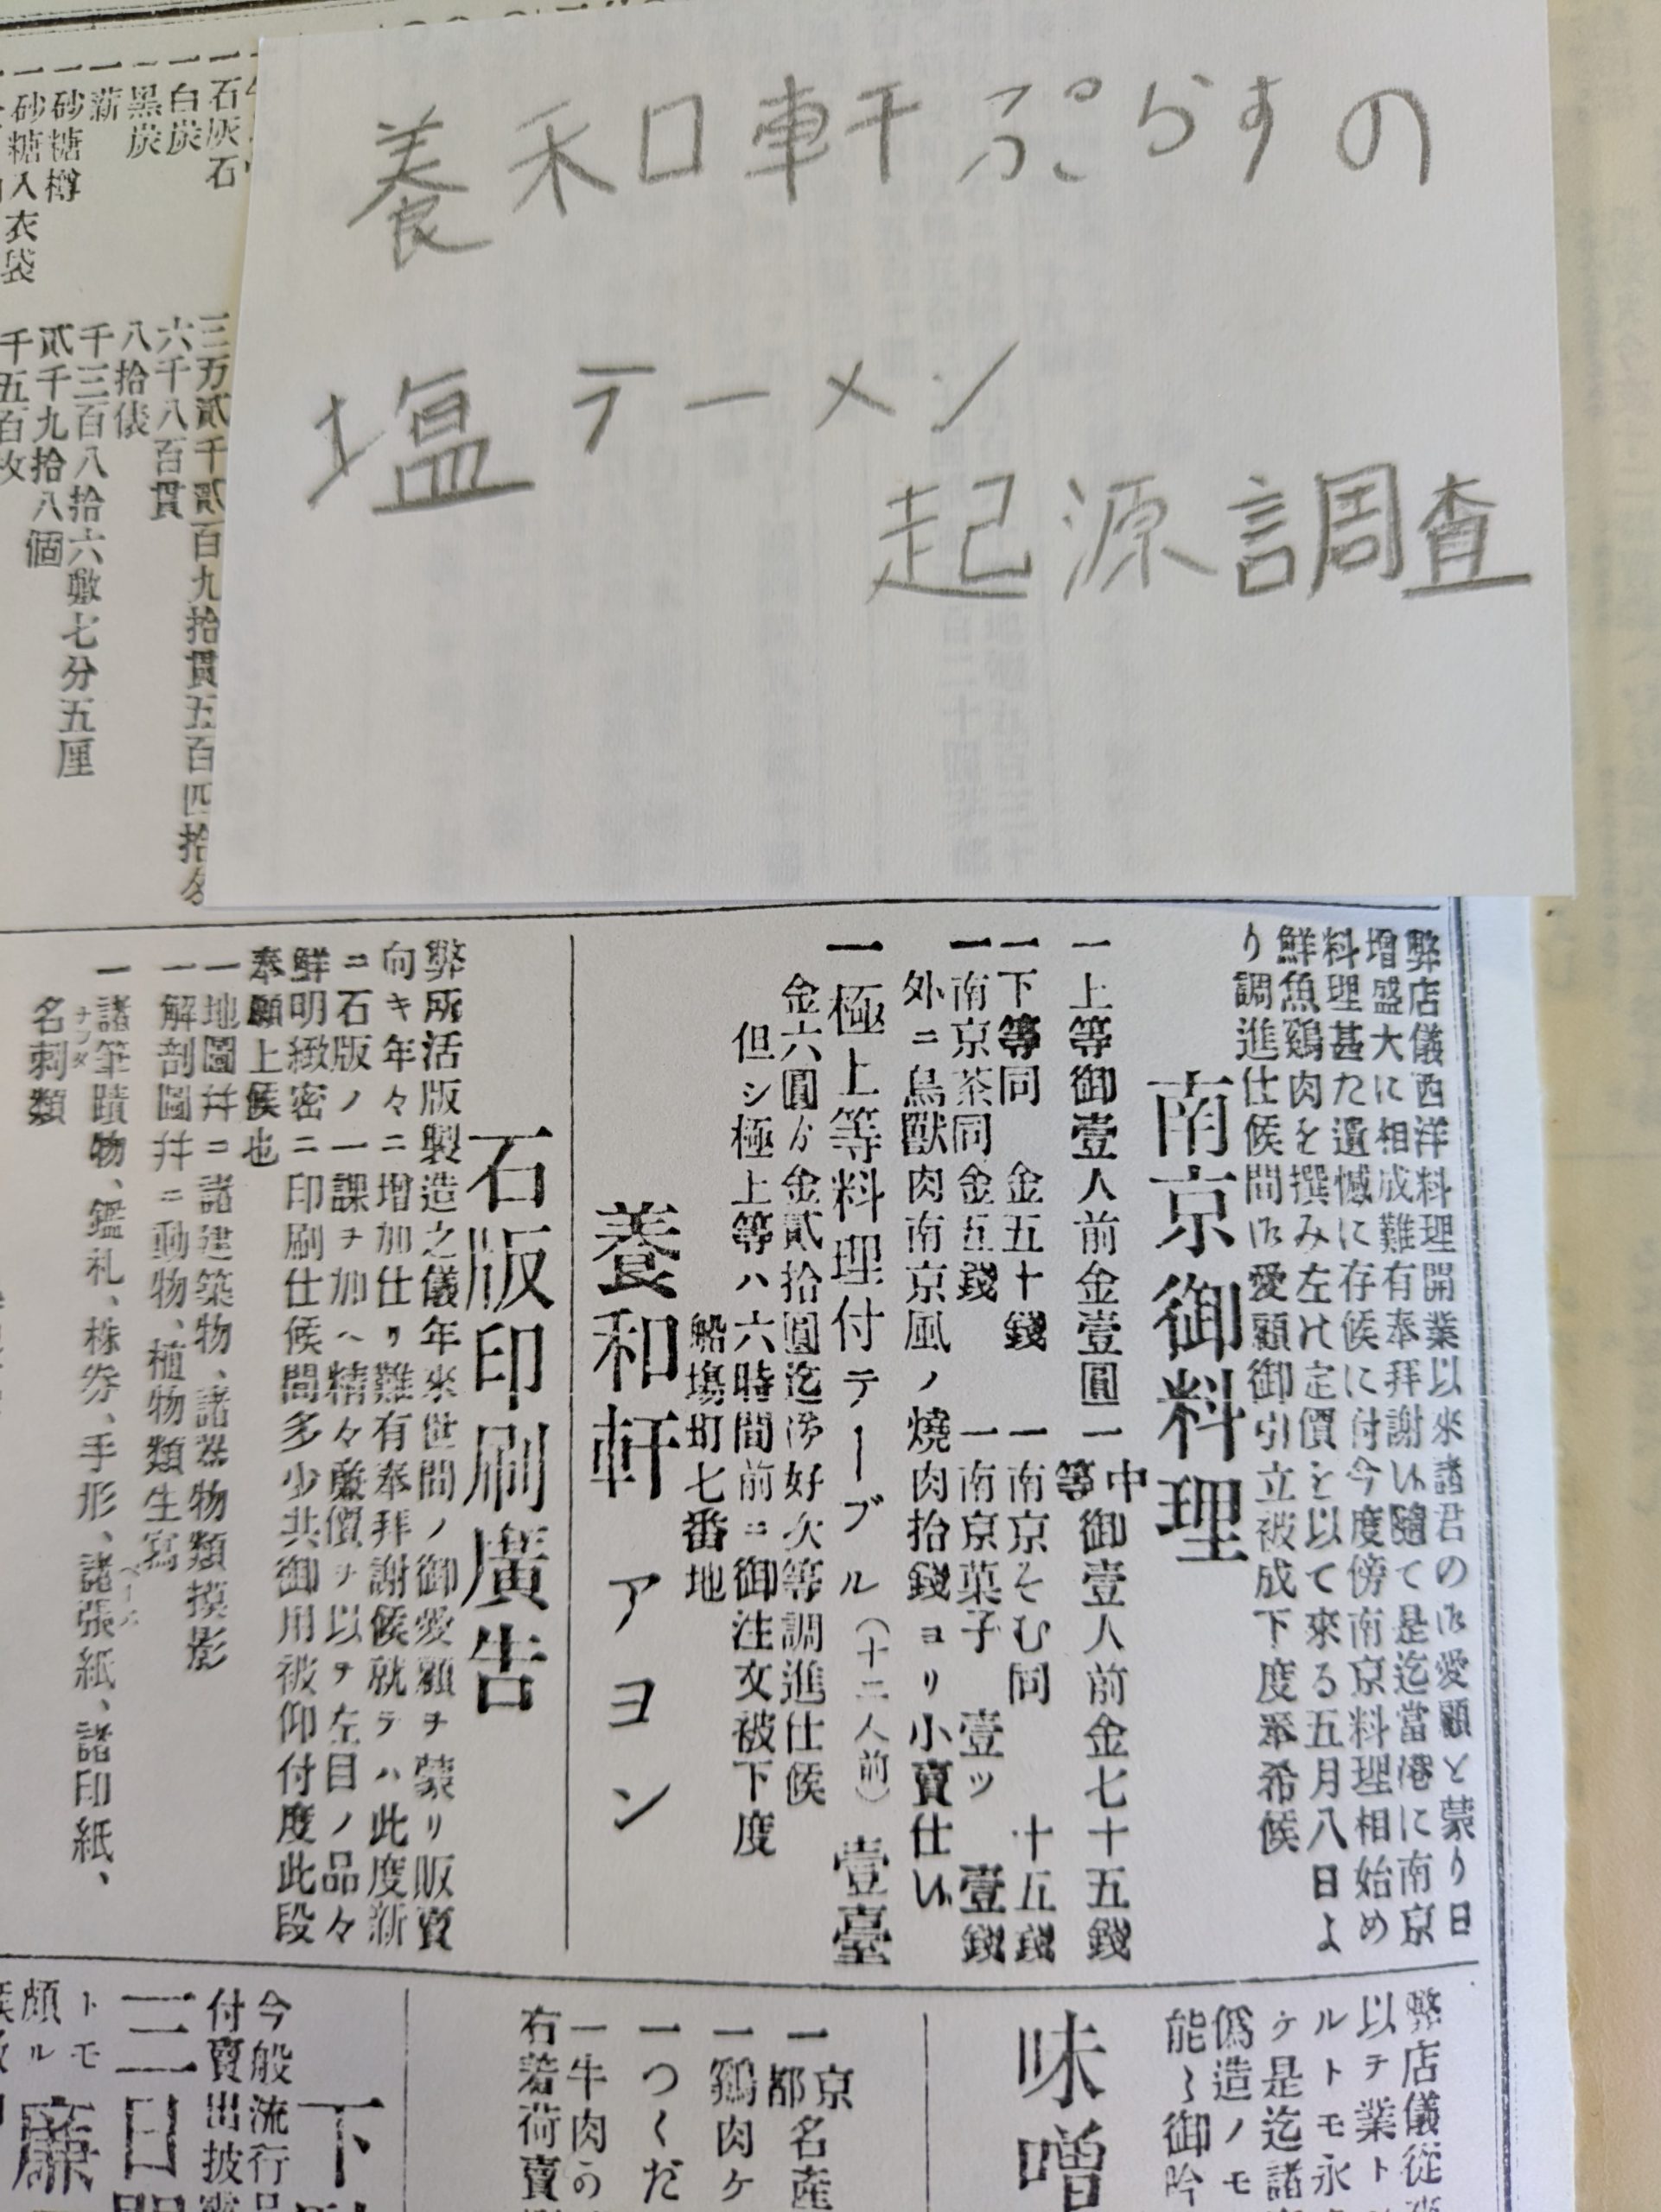 養和軒ぷらすの
塩ラーメン
起源調査
一石灰石
一白炭
一黒炭
一薪
一砂糖樽
一砂糖入衣袋
三万貳千貳百九拾貫五百四拾タ
六千八百貫
八拾俵
千三百八拾六敷七分五厘
貳千九拾八個
千五百枚
弊店儀西洋料理開業以來諸君の御愛顧を蒙り日
増盛大に相成難有奉拜謝候隨て是迄當港に南京
料理甚た遺憾に存候に付今度傍南京料理相始め
鮮魚鷄肉を撰み左の定價を以て來る五月八日よ
り調進仕候間御愛顧御引立被成下度奉希候
南京御料理
一上等御壹人前金壹圓 一中等御壹人前金七十五錢
一下等同 金五十錢 一南京そむ同 十五錢
一南京茶同 金五錢 一南京菓子 壹ツ 壹錢
外ニ鳥獸肉南京風ノ燒肉拾錢ヨリ小賣仕候
一極上等料理付テーブル(十二人前) 壹臺
金六圓ゟ金貳拾圓迄御好次等調進仕候
但シ極上等ハ六時間前ニ御注文被下度
船塲町七番地
養和軒 アヨン
石版印刷廣告
弊所活版製造之儀年來世間ノ御愛顧ヲ蒙リ販賣
向キ年々ニ増加仕リ難有奉拜謝候就テハ此度新
ニ石版ノ一課ヲ加ヘ精々廉價ヲ以テ左目ノ品々
鮮明緻密ニ印刷仕候間多少共御用被仰付度此段
奉願上候也
一地圖幷ニ諸建築物、諸器物類摸影
一解剖圖幷ニ動物、植物類生寫
一諸筆蹟物、鑑札、株券、手形、諸張紙、諸印紙、
名刺類
弊店儀從來
以テ業ト
ルトモ永
ケ是迄諸
僞造ノモ
能〻御吟
味噌
一京都名産
一鷄肉ケ
一つくだ
一牛肉の
右若荷賣
今般流行
付賣出披
下駄
三日間
トモ
頗ル
廉